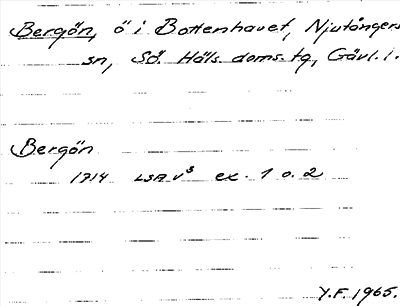 Bergön, ö i Bottenhavet, Njutångers
sn, Sö. Häls. doms. tg, Gävl. l.
Bergön
1714 LSA v⁸ ex. 1 o. 2
Y.F. 1965.